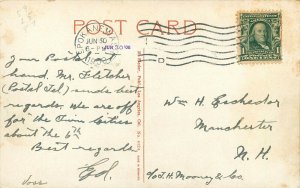 POST CARD
SPOKANE, WA
JUN 30
6-P
JUN 30 '08
D
Your Postal at
hand. Mr. Fletcher
(Postal Tel) sends best
regards. We are off
for the Twin Cities
about the 6th
Best regards
Ed.
Wm H. Eschedor
Manchester
N. H.
c/o J. H. Mooney & Co.